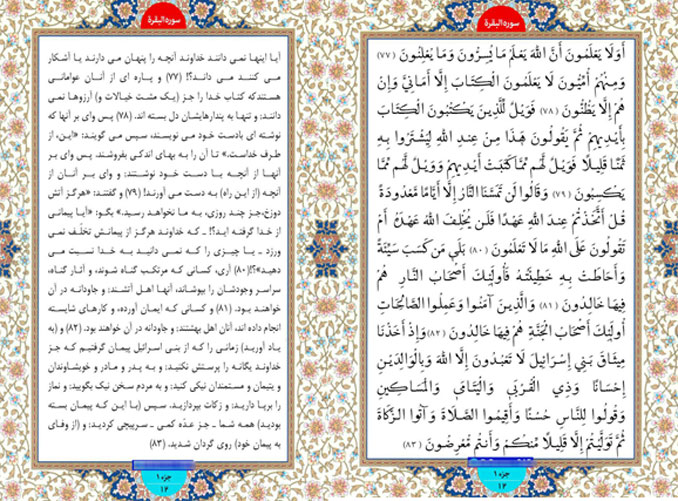 سوره البقرة
أَوَلَا يَعْلَمُونَ أَنَّ اللَّهَ يَعْلَمُ مَا يُسِرُّونَ وَمَا يُعْلِنُونَ (٧٧)
وَمِنْهُمْ أُمِّيُّونَ لَا يَعْلَمُونَ الْكِتَابَ إِلَّا أَمَانِيَّ وَإِنْ
هُمْ إِلَّا يَظُنُّونَ (٧٨) فَوَيْلٌ لِلَّذِينَ يَكْتُبُونَ الْكِتَابَ
بِأَيْدِيهِمْ ثُمَّ يَقُولُونَ هَذَا مِنْ عِنْدِ اللَّهِ لِيَشْتَرُوا بِهِ
ثَمَنًا قَلِيلًا فَوَيْلٌ لَهُمْ مِمَّا كَتَبَتْ أَيْدِيهِمْ وَوَيْلٌ لَهُمْ مِمَّا
يَكْسِبُونَ (٧٩) وَقَالُوا لَنْ تَمَسَّنَا النَّارُ إِلَّا أَيَّامًا مَعْدُودَةً
قُلْ أَتَّخَذْتُمْ عِنْدَ اللَّهِ عَهْدًا فَلَنْ يُخْلِفَ اللَّهُ عَهْدَهُ أَمْ
تَقُولُونَ عَلَى اللَّهِ مَا لَا تَعْلَمُونَ (٨٠) بَلَى مَنْ كَسَبَ سَيِّئَةً
وَأَحَاطَتْ بِهِ خَطِيئَتُهُ فَأُولَئِكَ أَصْحَابُ النَّارِ هُمْ
فِيهَا خَالِدُونَ (٨١) وَالَّذِينَ آمَنُوا وَعَمِلُوا الصَّالِحَاتِ
أُولَئِكَ أَصْحَابُ الْجَنَّةِ هُمْ فِيهَا خَالِدُونَ (٨٢) وَإِذْ أَخَذْنَا
مِيثَاقَ بَنِي إِسْرَائِيلَ لَا تَعْبُدُونَ إِلَّا اللَّهَ وَبِالْوَالِدَيْنِ
إِحْسَانًا وَذِي الْقُرْبَى وَالْيَتَامَى وَالْمَسَاكِينِ
وَقُولُوا لِلنَّاسِ حُسْنًا وَأَقِيمُوا الصَّلَاةَ وَآتُوا الزَّكَاةَ
ثُمَّ تَوَلَّيْتُمْ إِلَّا قَلِيلًا مِنْكُمْ وَأَنْتُمْ مُعْرِضُونَ (٨٣)
جزء ۱
۱۳
سوره البقرة
آیا اینها نمی دانند خداوند آنچه را پنهان می دارند یا آشکار
می کنند می دانند؟! (۷۷) و پاره ای از آنان عوامانی
هستندکه کتاب خدا را جز (یک مشت خیالات و) آرزوها نمی
دانند؛ و تنها به پندارهایشان دل بسته اند. (۷۸) پس وای بر آنها که
نوشته ای بادست خود می نویسند، سپس می گویند: «این، از
طرف خداست.» تا آن را به بهای اندکی بفروشند. پس وای بر
آنها از آنچه با دست خود نوشتند؛ و وای بر آنان از
آنچه (از این راه) به دست می آورند! (۷۹) و گفتند: «هرگز آتش
دوزخ،جز چند روزی، به ما نخواهد رسید.» بگو: «آیا پیمانی
از خدا گرفته اید؟! ـ که خداوند هرگز از پیمانش تخلّف نمی
ورزد ـ یا چیزی را که نمی دانید به خدا نسبت می
دهید»؟!(۸۰) آری، کسانی که مرتکب گناه شوند، و آثار گناه،
سراسر وجودشان را بپوشاند، آنها اهل آتشند؛ و جاودانه در آن
خواهند بود. (۸۱) و کسانی که ایمان آورده، و کارهای شایسته
انجام داده اند، آنان اهل بهشتند؛ و جاودانه در آن خواهند بود. (۸۲) و (به
یاد آورید) زمانی را که از بنی اسرائیل پیمان گرفتیم که جز
خداوند یگانه را پرستش نکنید؛ و به پدر و مادر و خویشاوندان
و یتیمان و مستمندان نیکی کنید؛ و به مردم سخن نیک بگویید؛ و نماز
را برپا دارید؛ و زکات بپردازید. سپس (با این که پیمان بسته
بودید) همه شما ـ جز عدّه کمی ـ سرپیچی کردید؛ و (از وفای
به پیمان خود) روی گردان شدید. (۸۳)
جزء ۱
۱۲